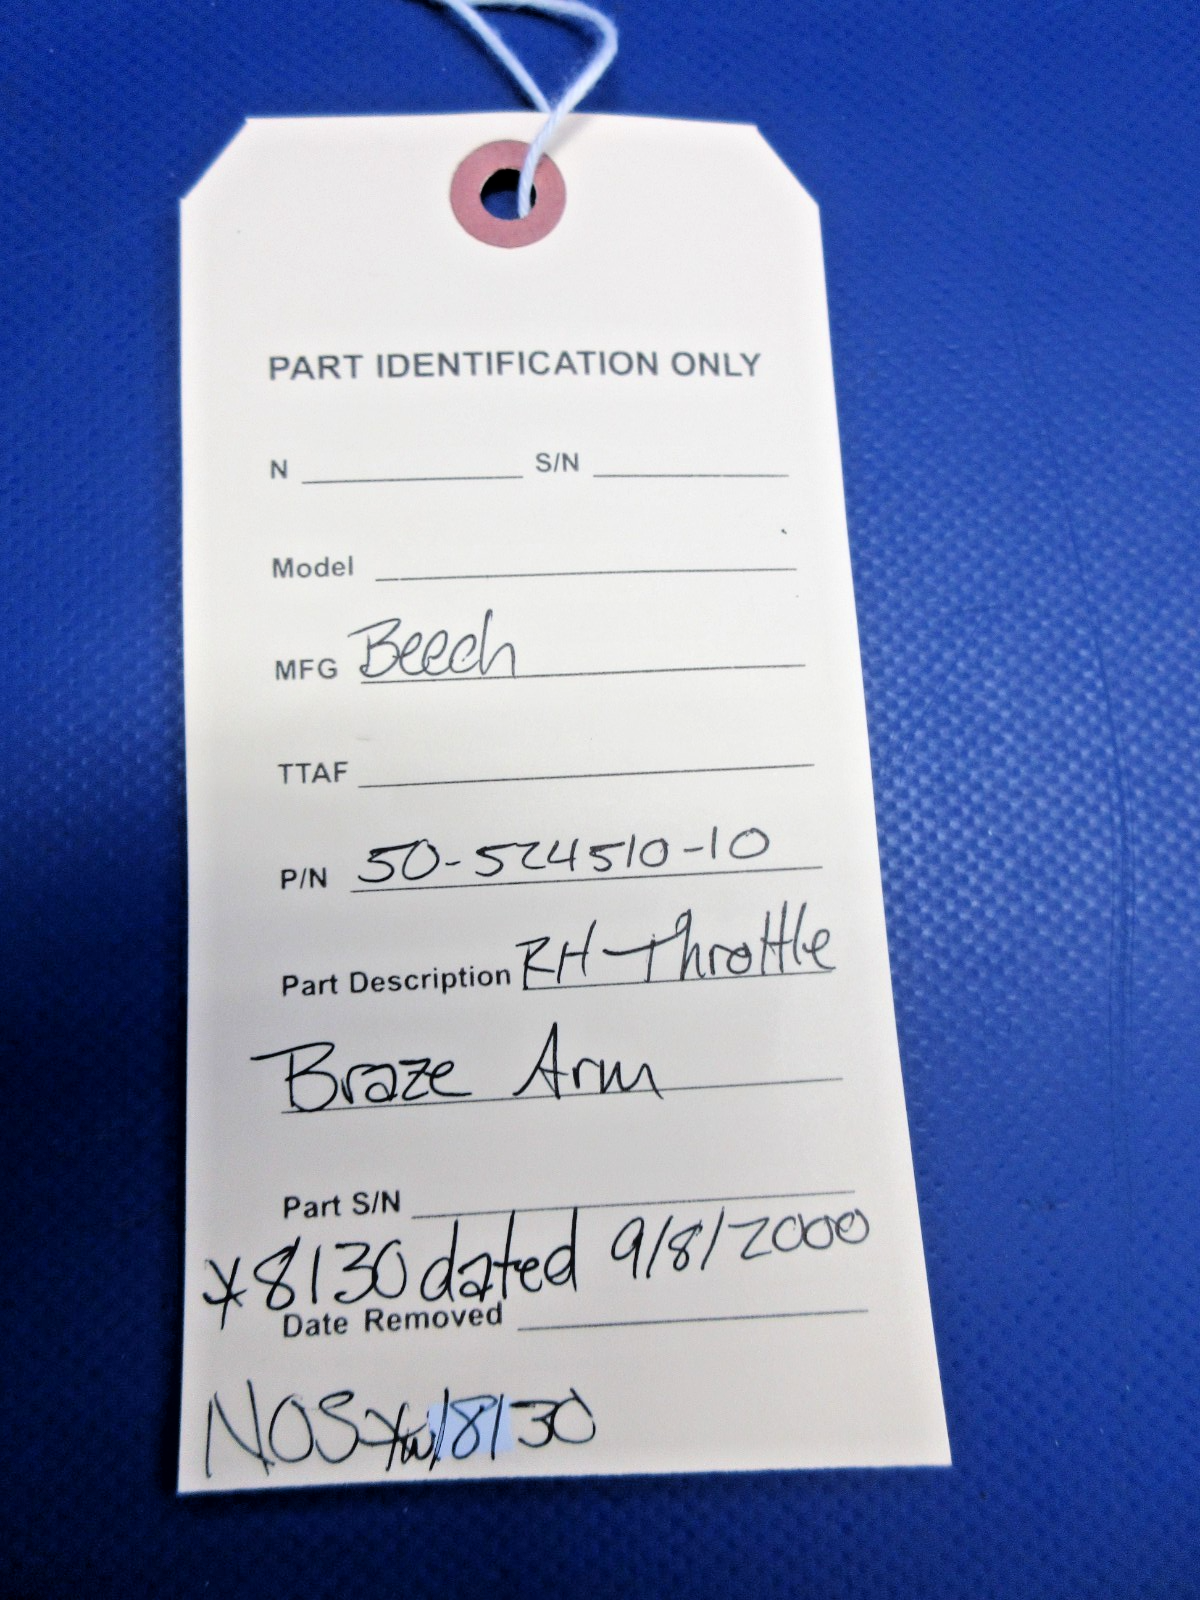 PART IDENTIFICATION ONLY
N S/N
Model
MFG Beech
TTAF
P/N 50-524510-10
Part Description RH Throttle
Braze Arm
Part S/N
*8130 dated 9/8/2000
Date Removed
NOS *w/8130